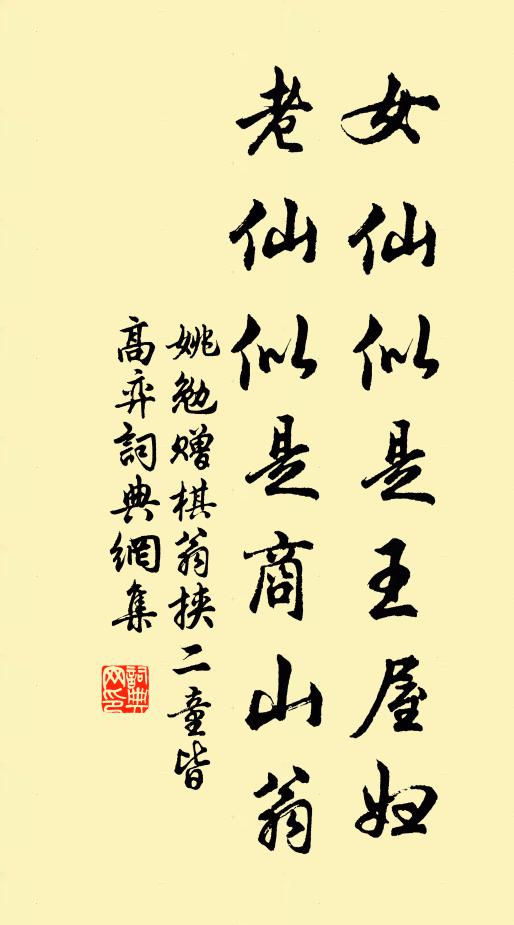 女仙似是王屋妇
老仙似是商山翁
姚勉赠棋翁挟二童皆
高弈詞典網集
詞典
网印